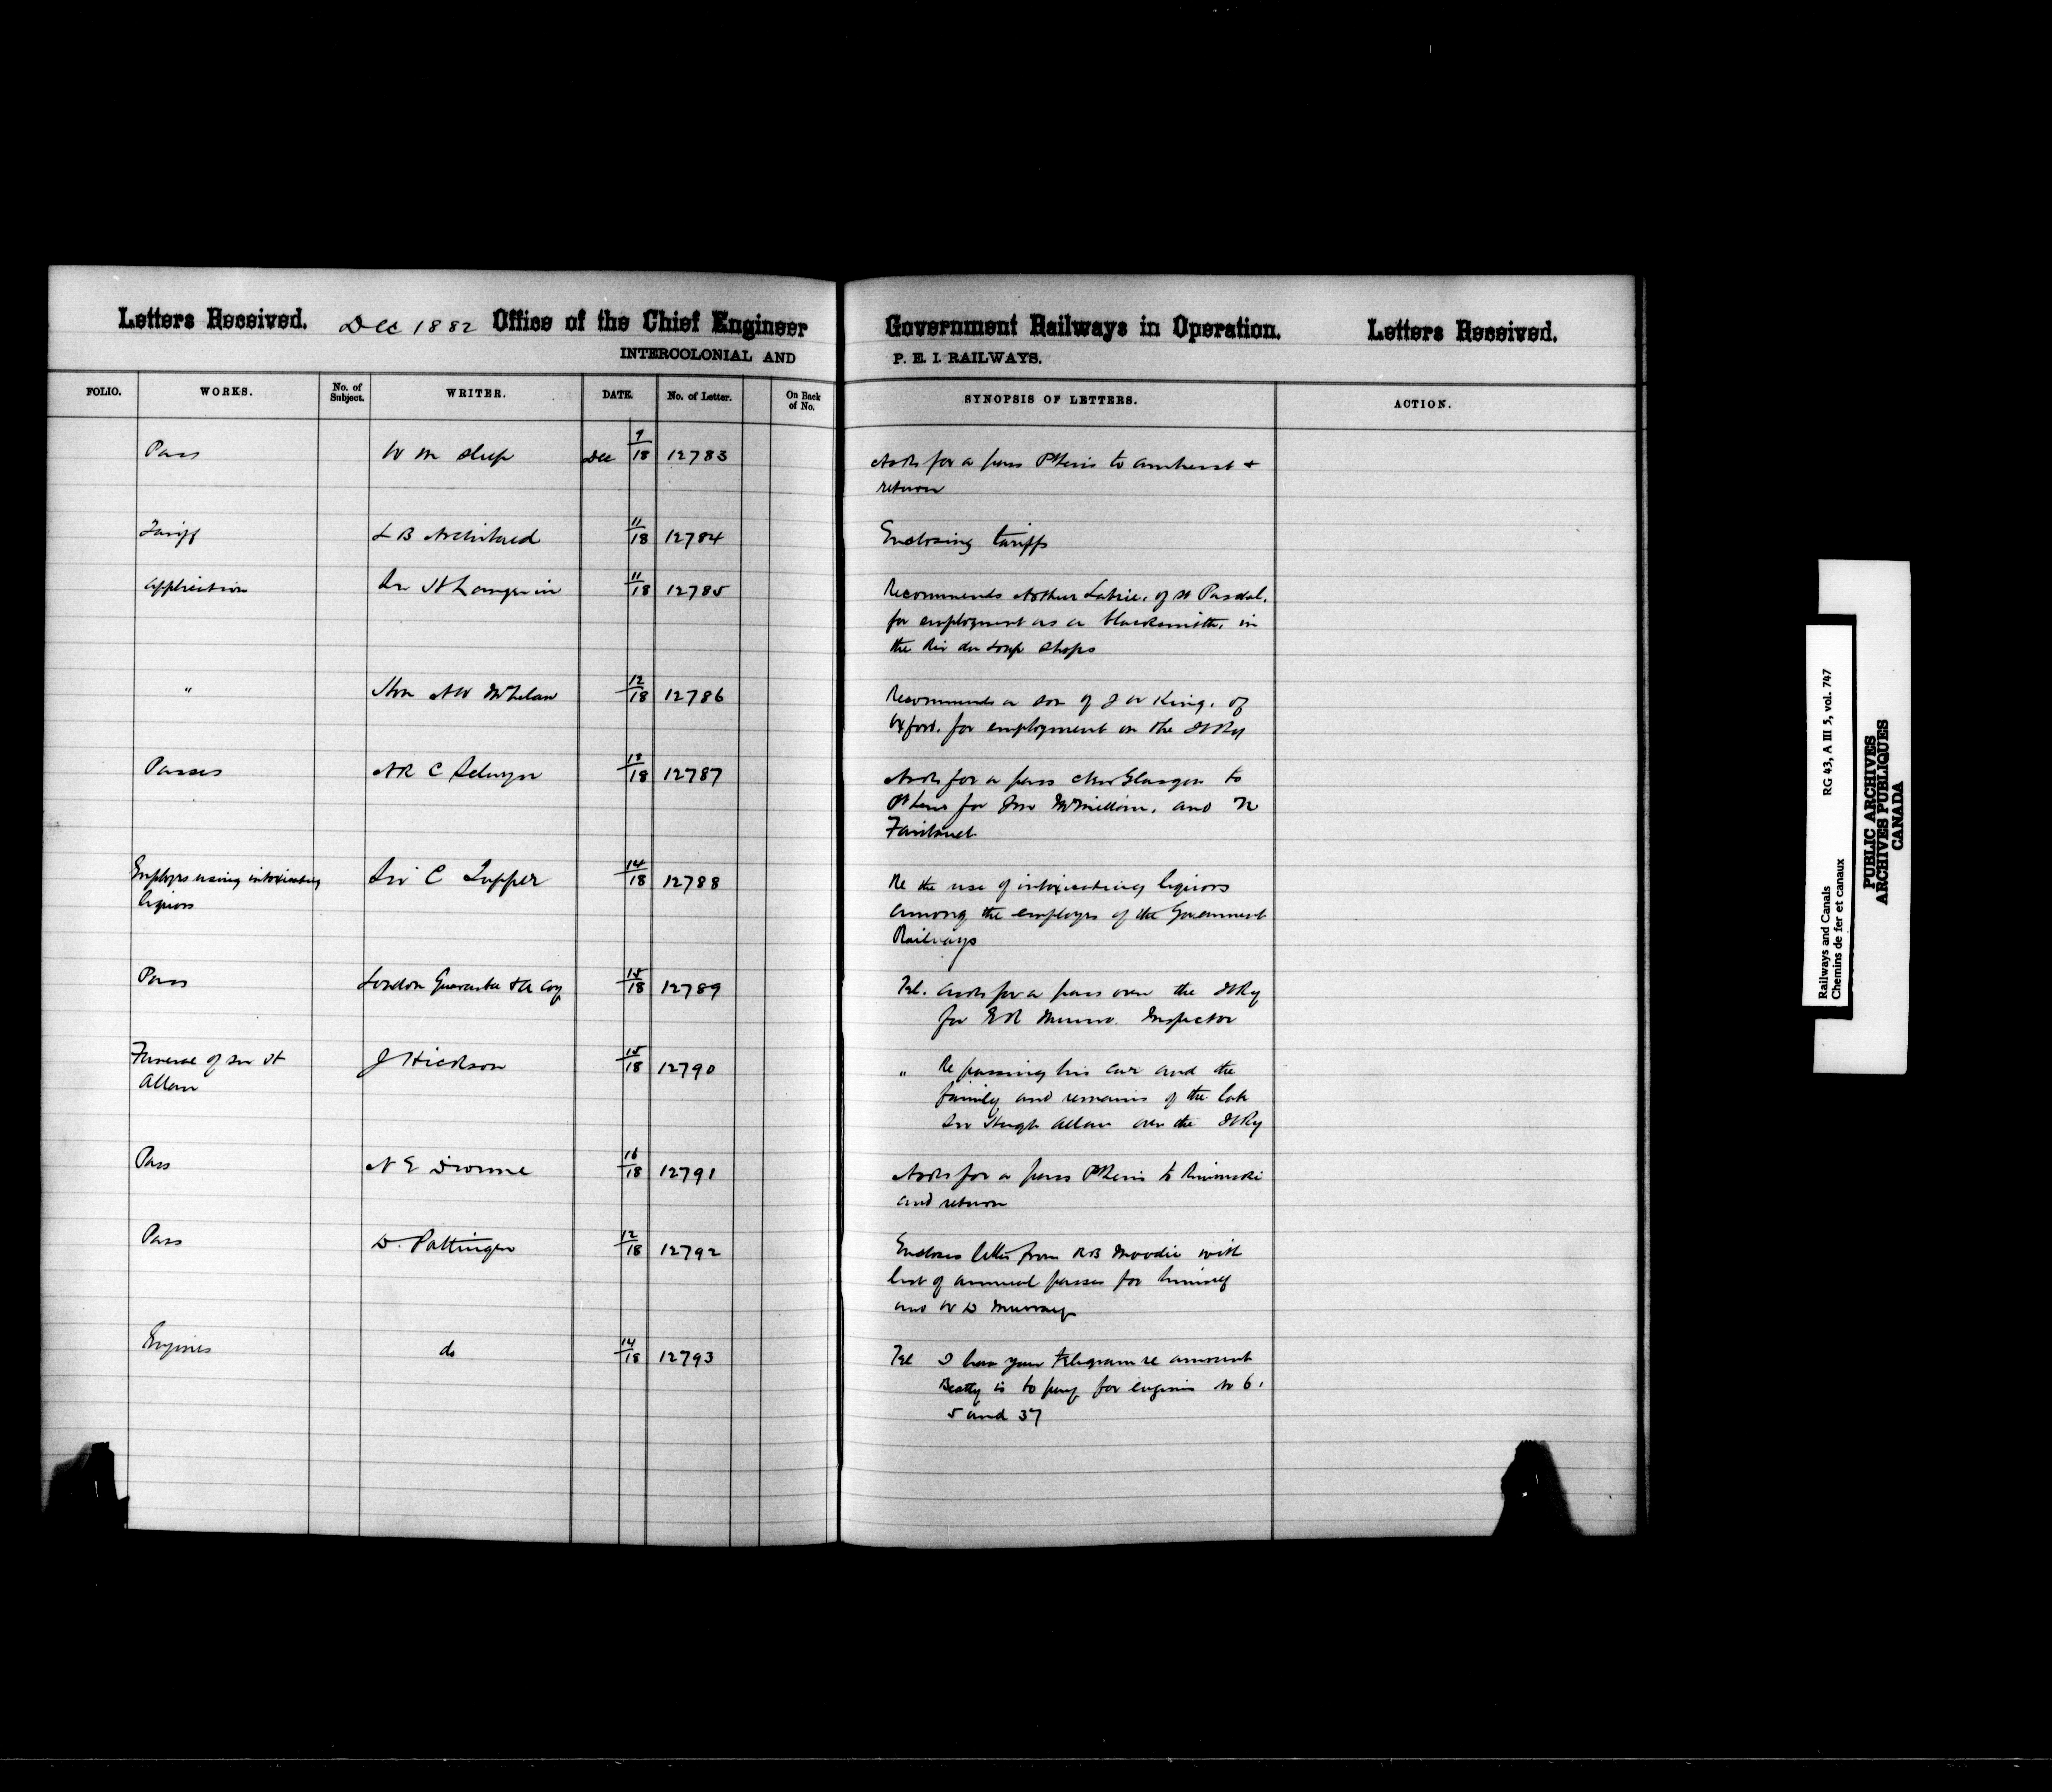 Letters Received. Dec 1882 Office of the Chief Engineer Government Railways in Operation. Letters Received.
INTERCOLONIAL AND P. E. I. RAILWAYS.
FOLIO. WORKS. No. of Subject. WRITER. DATE. No. of Letter. On Back of No. SYNOPSIS OF LETTERS. ACTION.
Pass W M Dec 9/18 12783 Asks for a pass Pt Levis to Amherst +
return
Tariff L B Archibald 11/18 12784 Enclosing tariffs
Application Sir H Langevin 11/18 12785 Recommends Arthur Labrie, of St Pascal,
for employment as a blacksmith, in
the Riv du Loup Shops
" Hon A W McLelan 12/18 12786 Recommends a son of J W King, of
Oxford, for employment on the I Ry
Passes A R C Selwyn 18 12787 Asks for a pass New Glasgow to
Pt Levis for Jno McMillan, and
Employes using intoxicating Sir C Tupper 14/18 12788 Re the use of intoxicating liquors
liquors among the employes of the Government
Railways
Pass London Guarantee & A Coy 15/18 12789 Tel. Asks for a pass over the I Ry
for E R Munro. Inspector
Funeral of Sir H J Hickson 15/18 12790 " Re passing his car and the
Allan family and remains of the late
Sir Hugh Allan over the I Ry
Pass N E Dionne 16/18 12791 Asks for a pass Pt Levis to Rimouski
and return
Pass D. Pottinger 12/18 12792 Encloses letter from R B Moodie with
list of annual passes for himself
and W D Murray
Engines do 14/18 12793 Tel I have your telegram re amount
Beatty is to pay for engines No 6,
5 and 37
Railways and Canals RG 43, A III 5, vol. 747
Chemins de fer et canaux
PUBLIC ARCHIVES
ARCHIVES PUBLIQUES
CANADA